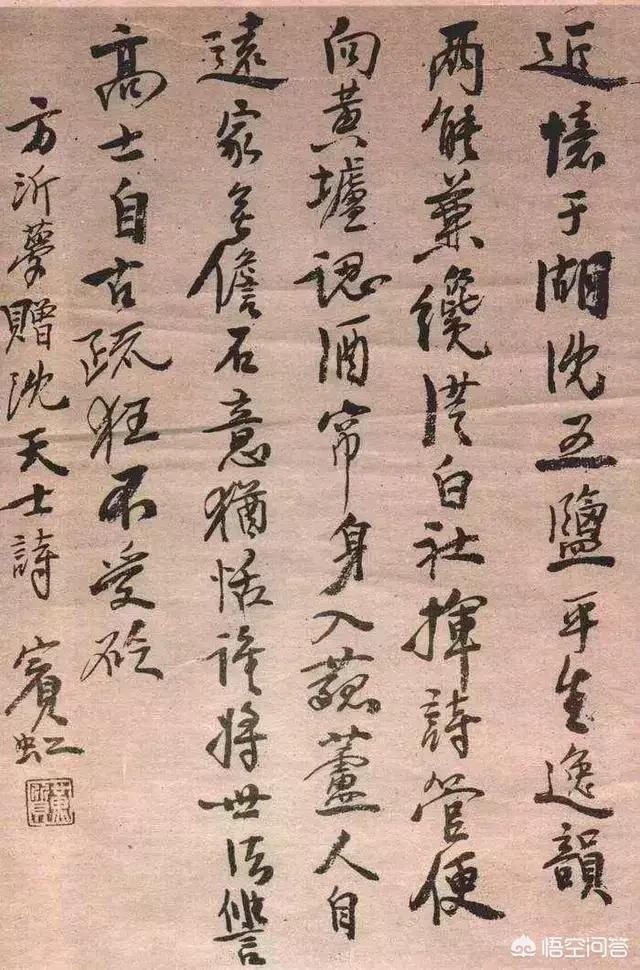 近憶于湖沈五鹽平生逸韻
兩能兼纔從白社揮詩管便
向黃壚認酒帘身入菰蘆人自
遠家無儋石意猶恬誰將世法讐
高士自古疏狂不受砭
方沂夢贈沈天士詩 賓虹
悟空问答